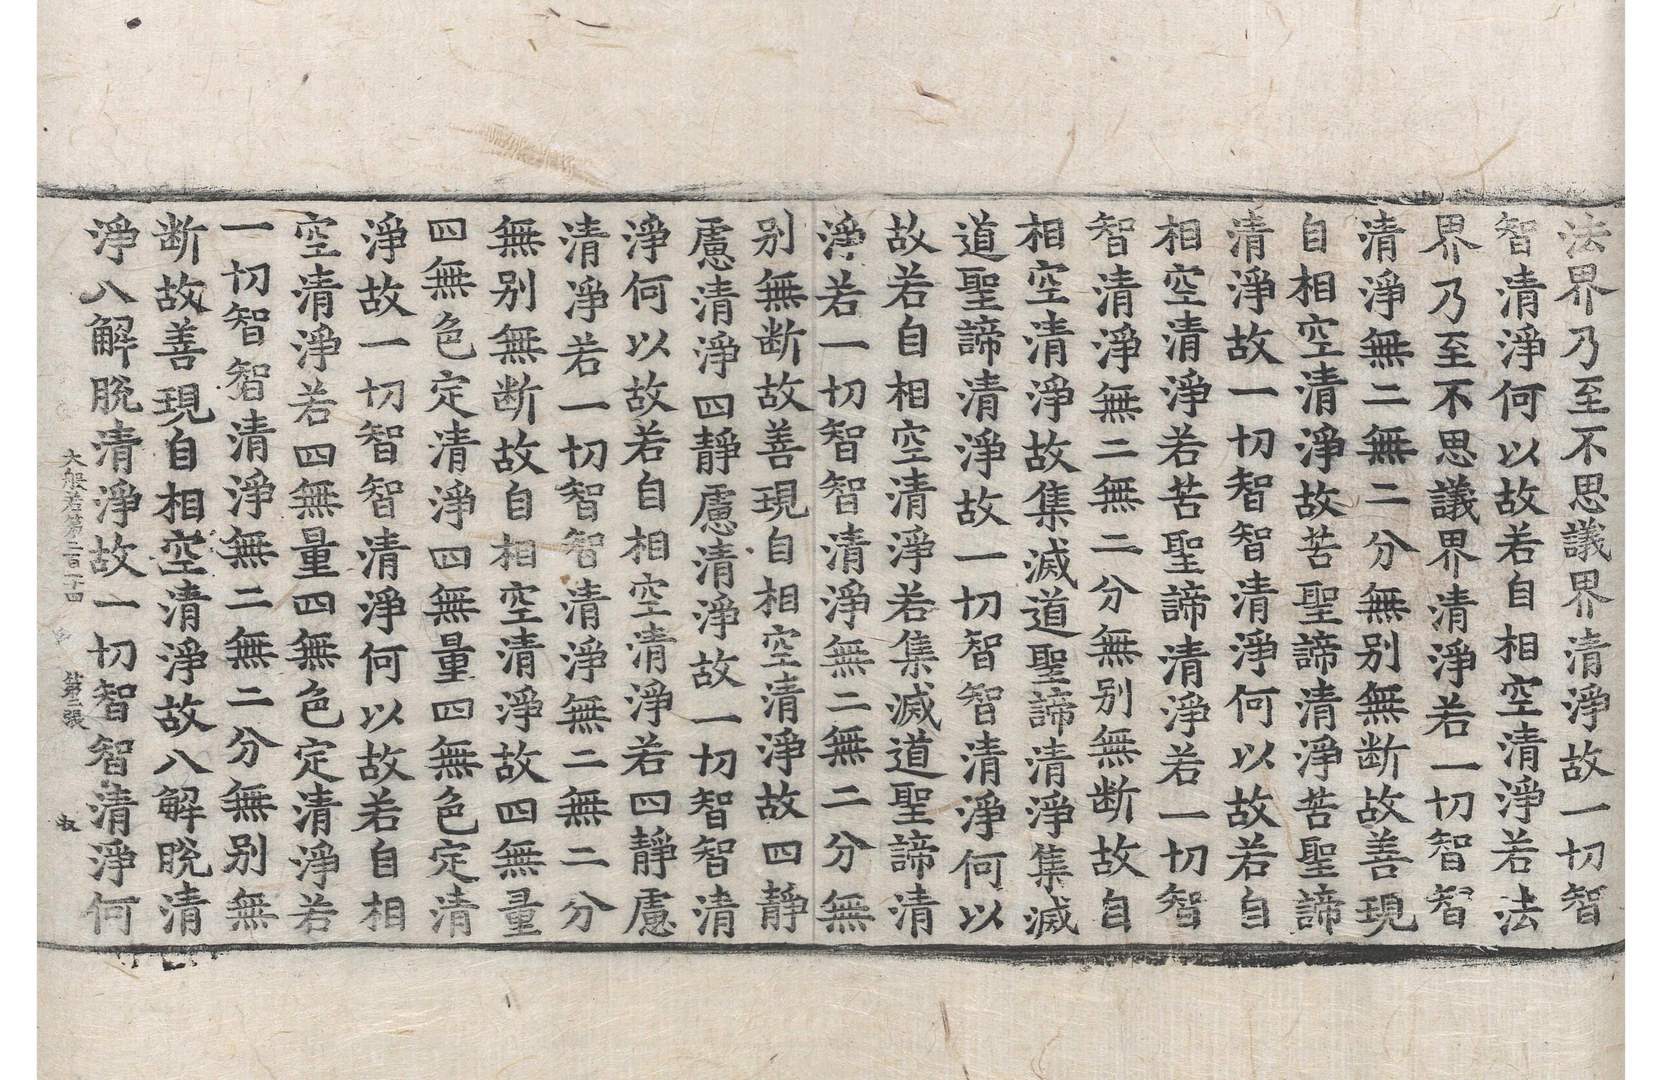 法界乃至不思議界清淨故一切智
智清淨何以故若自相空清淨若法
界乃至不思議界清淨若一切智智
清淨無二無二分無别無断故善現
自相空清淨故苦聖諦清淨苦聖諦
清淨故一切智智清淨何以故若自
相空清淨若苦聖諦清淨若一切智
智清淨無二無二分無别無断故自
相空清淨故集滅道聖諦清淨集滅
道聖諦清淨故一切智智清淨何以
故若自相空清淨若集滅道聖諦清
淨若一切智智清淨無二無二分無
别無断故善現自相空清淨故四靜
慮清淨四靜慮清淨故一切智智清
淨何以故若自相空清淨若四靜慮
清淨若一切智智清淨無二無二分
無别無断故自相空清淨故四無量
四無色定清淨四無量四無色定清
淨故一切智智清淨何以故若自相
空清淨若四無量四無色定清淨若
一切智智清淨無二無二分無别無
断故善現自相空清淨故八解脫清
淨八解脫清淨故一切智智清淨何
大般若第二百一十四 第 張 収